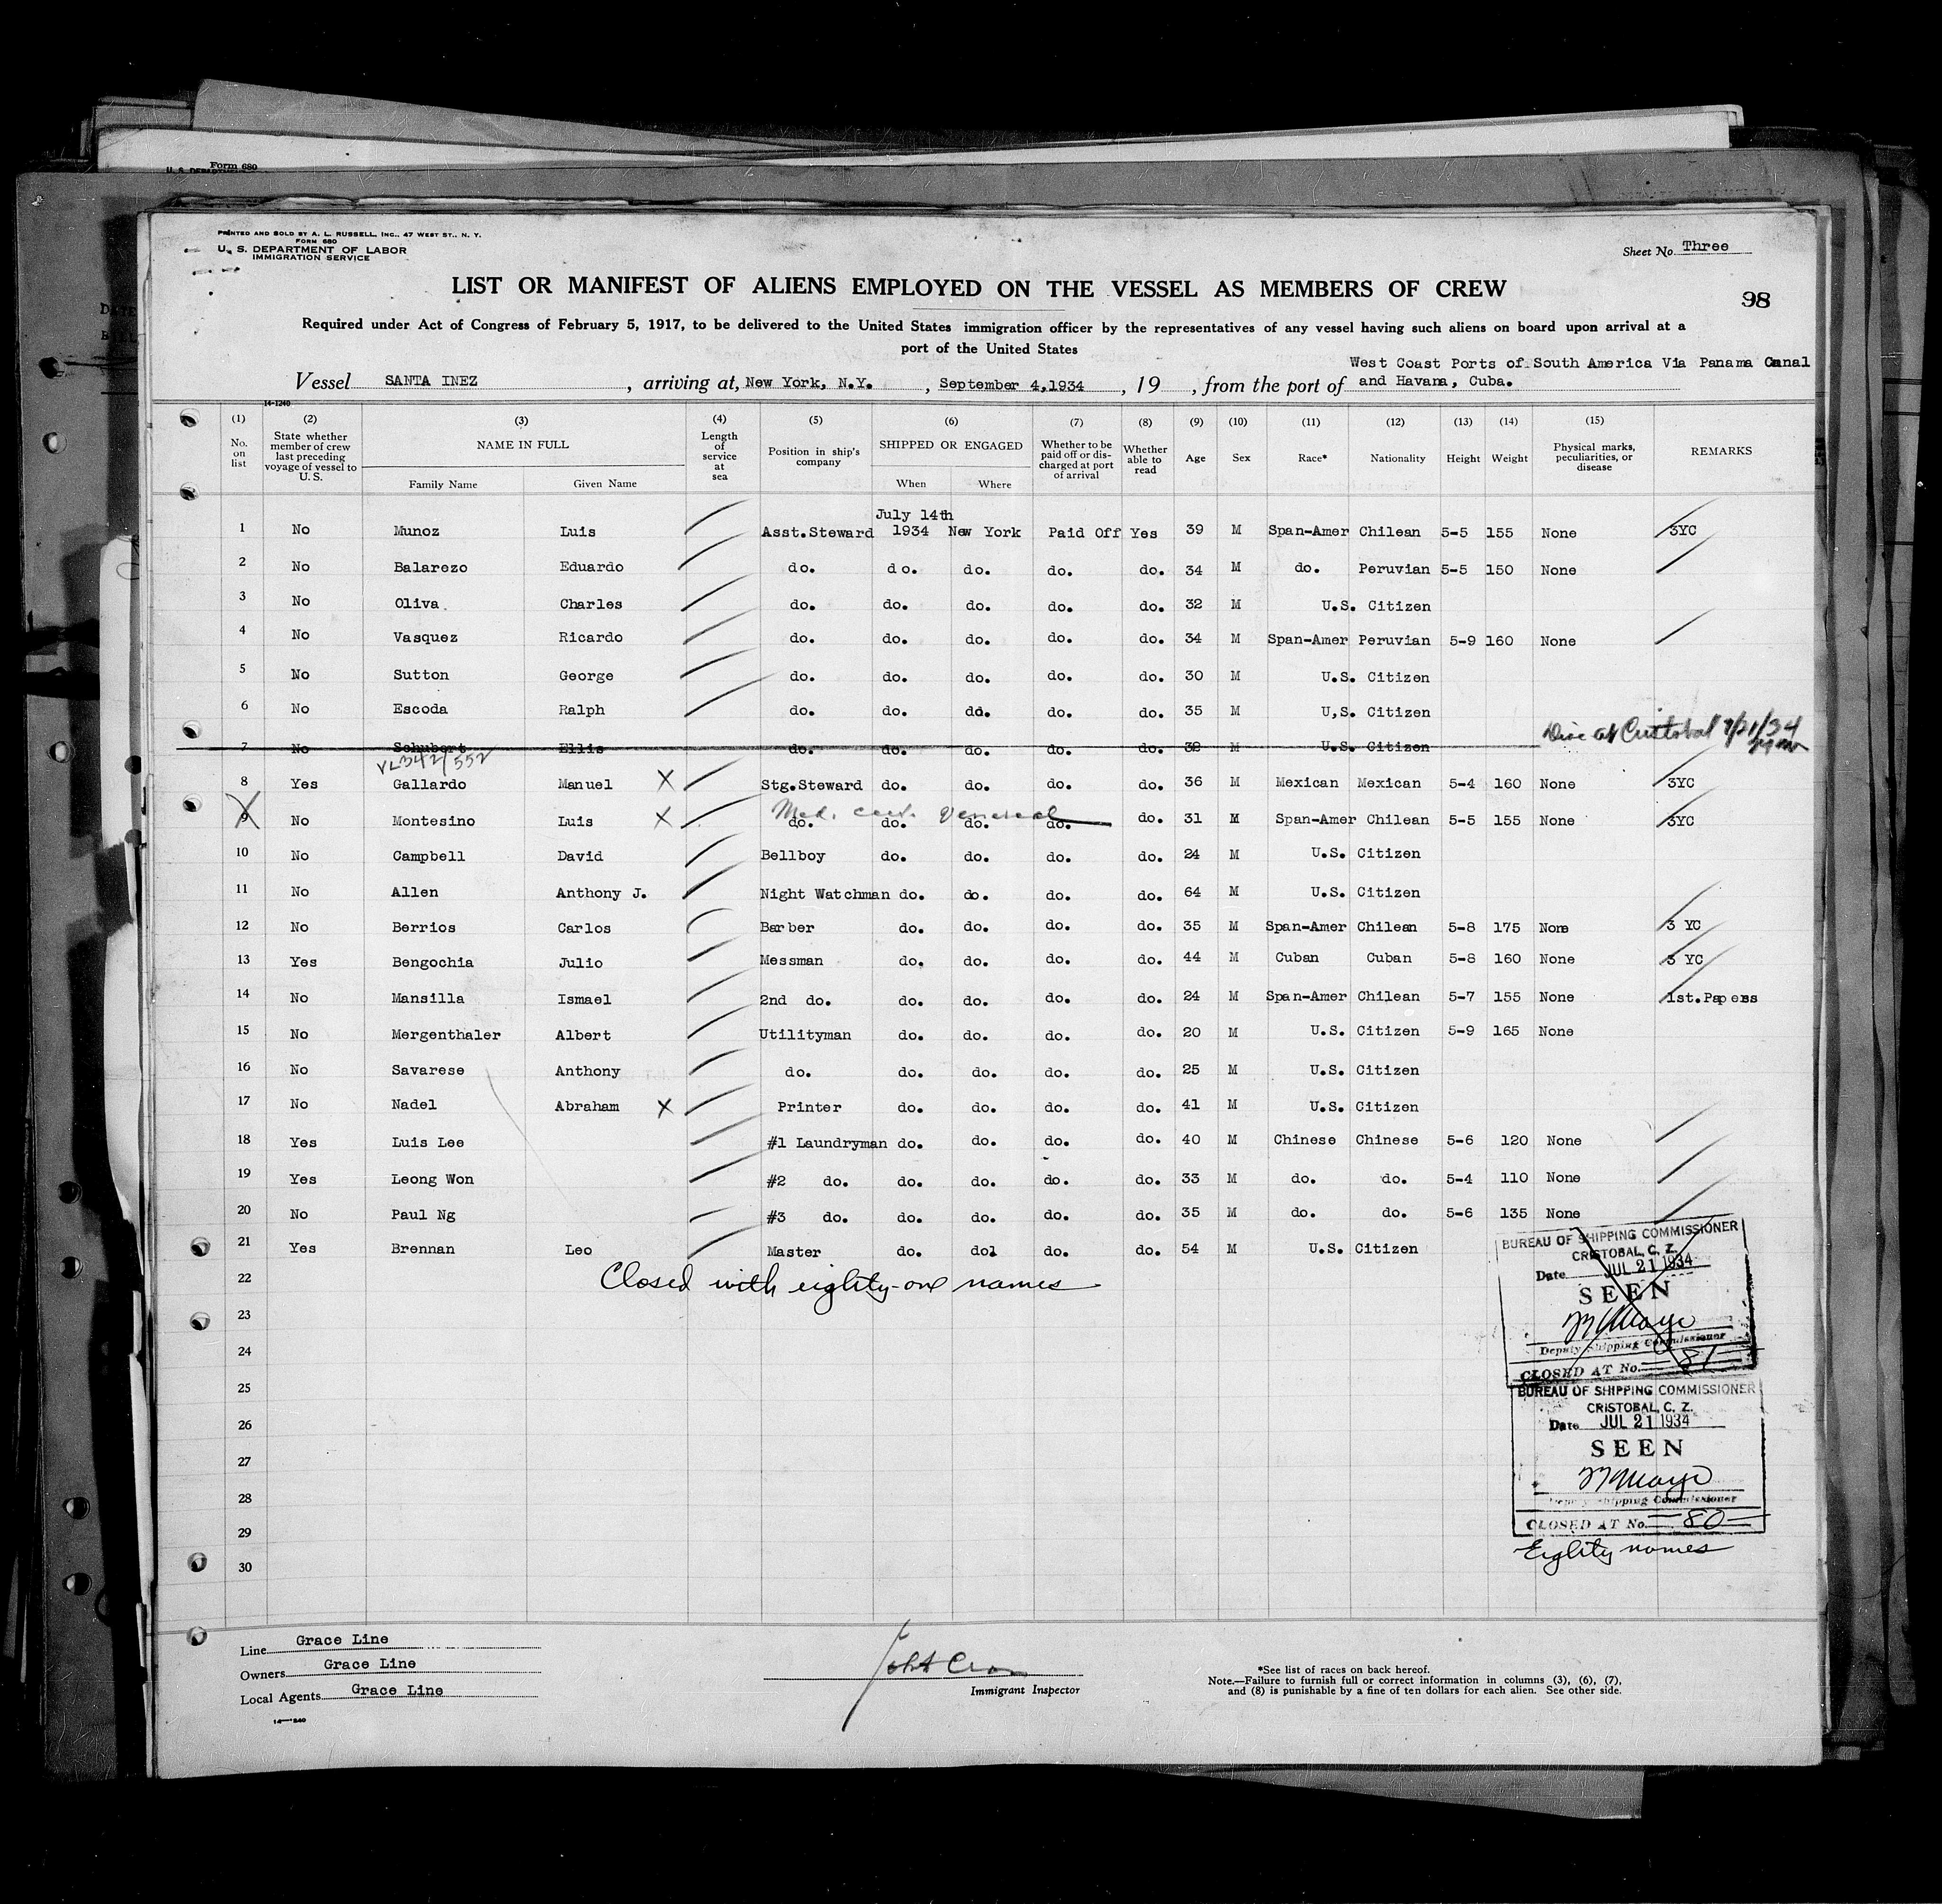 Form 680
PRINTED AND SOLD BY A. L. RUSSELL, INC., 47 WEST ST., N. Y.
FORM 680
U. S. DEPARTMENT OF LABOR
IMMIGRATION SERVICE
Sheet No. Three
LIST OR MANIFEST OF ALIENS EMPLOYED ON THE VESSEL AS MEMBERS OF CREW
98
Required under Act of Congress of February 5, 1917, to be delivered to the United States immigration officer by the representatives of any vessel having such aliens on board upon arrival at a
port of the United States
West Coast Ports of South America Via Panama Canal
Vessel SANTA INEZ, arriving at, New York, N.Y., September 4,1934, 19 , from the port of and Havana, Cuba.
14-1240
(1) (2) (3) (4) (5) (6) (7) (8) (9) (10) (11) (12) (13) (14) (15)
No. on list State whether member of crew last preceding voyage of vessel to U. S. NAME IN FULL Length of service at sea Position in ship's company SHIPPED OR ENGAGED Whether to be paid off or discharged at port of arrival Whether able to read Age Sex Race* Nationality Height Weight Physical marks, peculiarities, or disease REMARKS
Family Name Given Name When Where
July 14th
1 No Munoz Luis Asst.Steward 1934 New York Paid Off Yes 39 M Span-Amer Chilean 5-5 155 None 3YC
2 No Balarezo Eduardo do. do. do. do. do. 34 M do. Peruvian 5-5 150 None
3 No Oliva Charles do. do. do. do. do. 32 M U.S. Citizen
4 No Vasquez Ricardo do. do. do. do. do. 34 M Span-Amer Peruvian 5-9 160 None
5 No Sutton George do. do. do. do. do. 30 M U.S. Citizen
6 No Escoda Ralph do. do. do. do. do. 35 M U,S. Citizen
7 No Schubert Ellis do. do. do. do. do. 32 M U.S. Citizen Disc at Cristobal 7/21/34
VL342/552
8 Yes Gallardo Manuel X Stg.Steward do. do. do. do. 36 M Mexican Mexican 5-4 160 None 3YC
Med. cert. venereal
9 No Montesino Luis X do. do. do. do. do. 31 M Span-Amer Chilean 5-5 155 None 3YC
10 No Campbell David Bellboy do. do. do. do. 24 M U.S. Citizen
11 No Allen Anthony J. Night Watchman do. do. do. do. 64 M U.S. Citizen
12 No Berrios Carlos Barber do. do. do. do. 35 M Span-Amer Chilean 5-8 175 None 3 YC
13 Yes Bengochia Julio Messman do. do. do. do. 44 M Cuban Cuban 5-8 160 None 3 YC
14 No Mansilla Ismael 2nd do. do. do. do. do. 24 M Span-Amer Chilean 5-7 155 None 1st.Papers
15 No Mergenthaler Albert Utilityman do. do. do. do. 20 M U.S. Citizen 5-9 165 None
16 No Savarese Anthony do. do. do. do. do. 25 M U.S. Citizen
17 No Nadel Abraham X Printer do. do. do. do. 41 M U.S. Citizen
18 Yes Luis Lee #1 Laundryman do. do. do. do. 40 M Chinese Chinese 5-6 120 None
19 Yes Leong Won #2 do. do. do. do. do. 33 M do. do. 5-4 110 None
20 No Paul Ng #3 do. do. do. do. do. 35 M do. do. 5-6 135 None
21 Yes Brennan Leo Master do. do1 do. do. 54 M U.S. Citizen
22 Closed with eighty-one names
23
24
25
26
27
28
29
30
BUREAU OF SHIPPING COMMISSIONER
CRISTOBAL, C. Z.
Date JUL 21 1934
SEEN
Deputy Shipping Commissioner
CLOSED AT No. 81
BUREAU OF SHIPPING COMMISSIONER
CRISTOBAL, C. Z.
Date JUL 21 1934
SEEN
Deputy Shipping Commissioner
CLOSED AT No. 80
Eighty names
Line Grace Line
Owners Grace Line
Local Agents Grace Line
Immigrant Inspector
*See list of races on back hereof.
Note.—Failure to furnish full or correct information in columns (3), (6), (7),
and (8) is punishable by a fine of ten dollars for each alien. See other side.